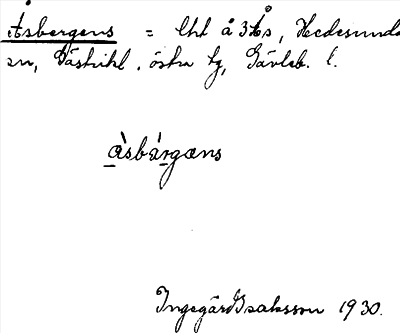 Åsbergens = lht å 3 Ås, Hedesunda
sn, Gästrikl. östra tg, Gävleb. l.
àsbárgæns
Ingegärd Isaksson 1930.